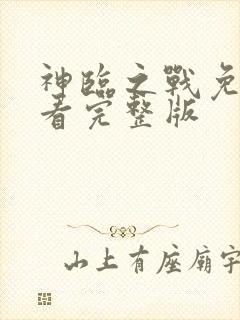 神臨之戰免
看完整版
山上有座廟宇